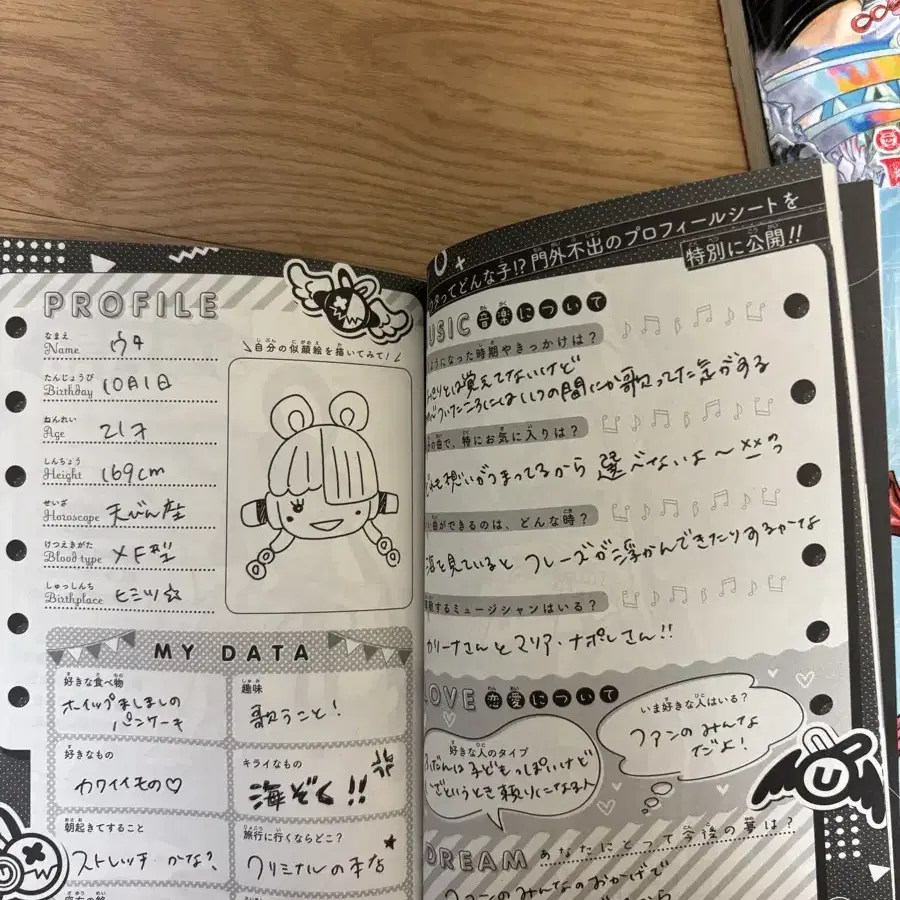 PROFILE
なまえ
Name ウタ
たんじょうび
Birthday 10月1日
ねんれい
Age 21才
しんちょう
Height 169cm
せいざ
Horoscope 天びん座
けつえきがた
Blood type XF型
しゅっしんち
Birthplace ヒミツ☆
自分の似顔絵を描いてみて!
MY DATA
好きな食べ物
ホイップましましの
パンケーキ
趣味
歌うこと!
好きなもの
カワイイもの♡
キライなもの
海ぞく!!
朝起きてすること
ストレッチ かな?
旅行に行くならどこ?
クリミナルの本店
ってどんな子!?門外不出のプロフィールシートを
特別に公開!!
USIC 音楽について
ようになった時期やきっかけは?
覚えてないけど
ついたころにはいつの間にか歌ってた気がする
曲で、特にお気に入りは?
想いがつまってるから 選べないよ〜
ができるのは、どんな時?
海を見ていると フレーズが浮かんできたりするかな
するミュージシャンはいる?
カリーナさんとマリア・ナポレさん!!
LOVE 恋愛について
好きな人のタイプ
ふだんは子どもっぽいけど
いざというとき頼りになる人
いま好きな人はいる?
ファンのみんな
だよ!
U
DREAM あなたにとって今後の夢は?
ファンのみんなのおかげで